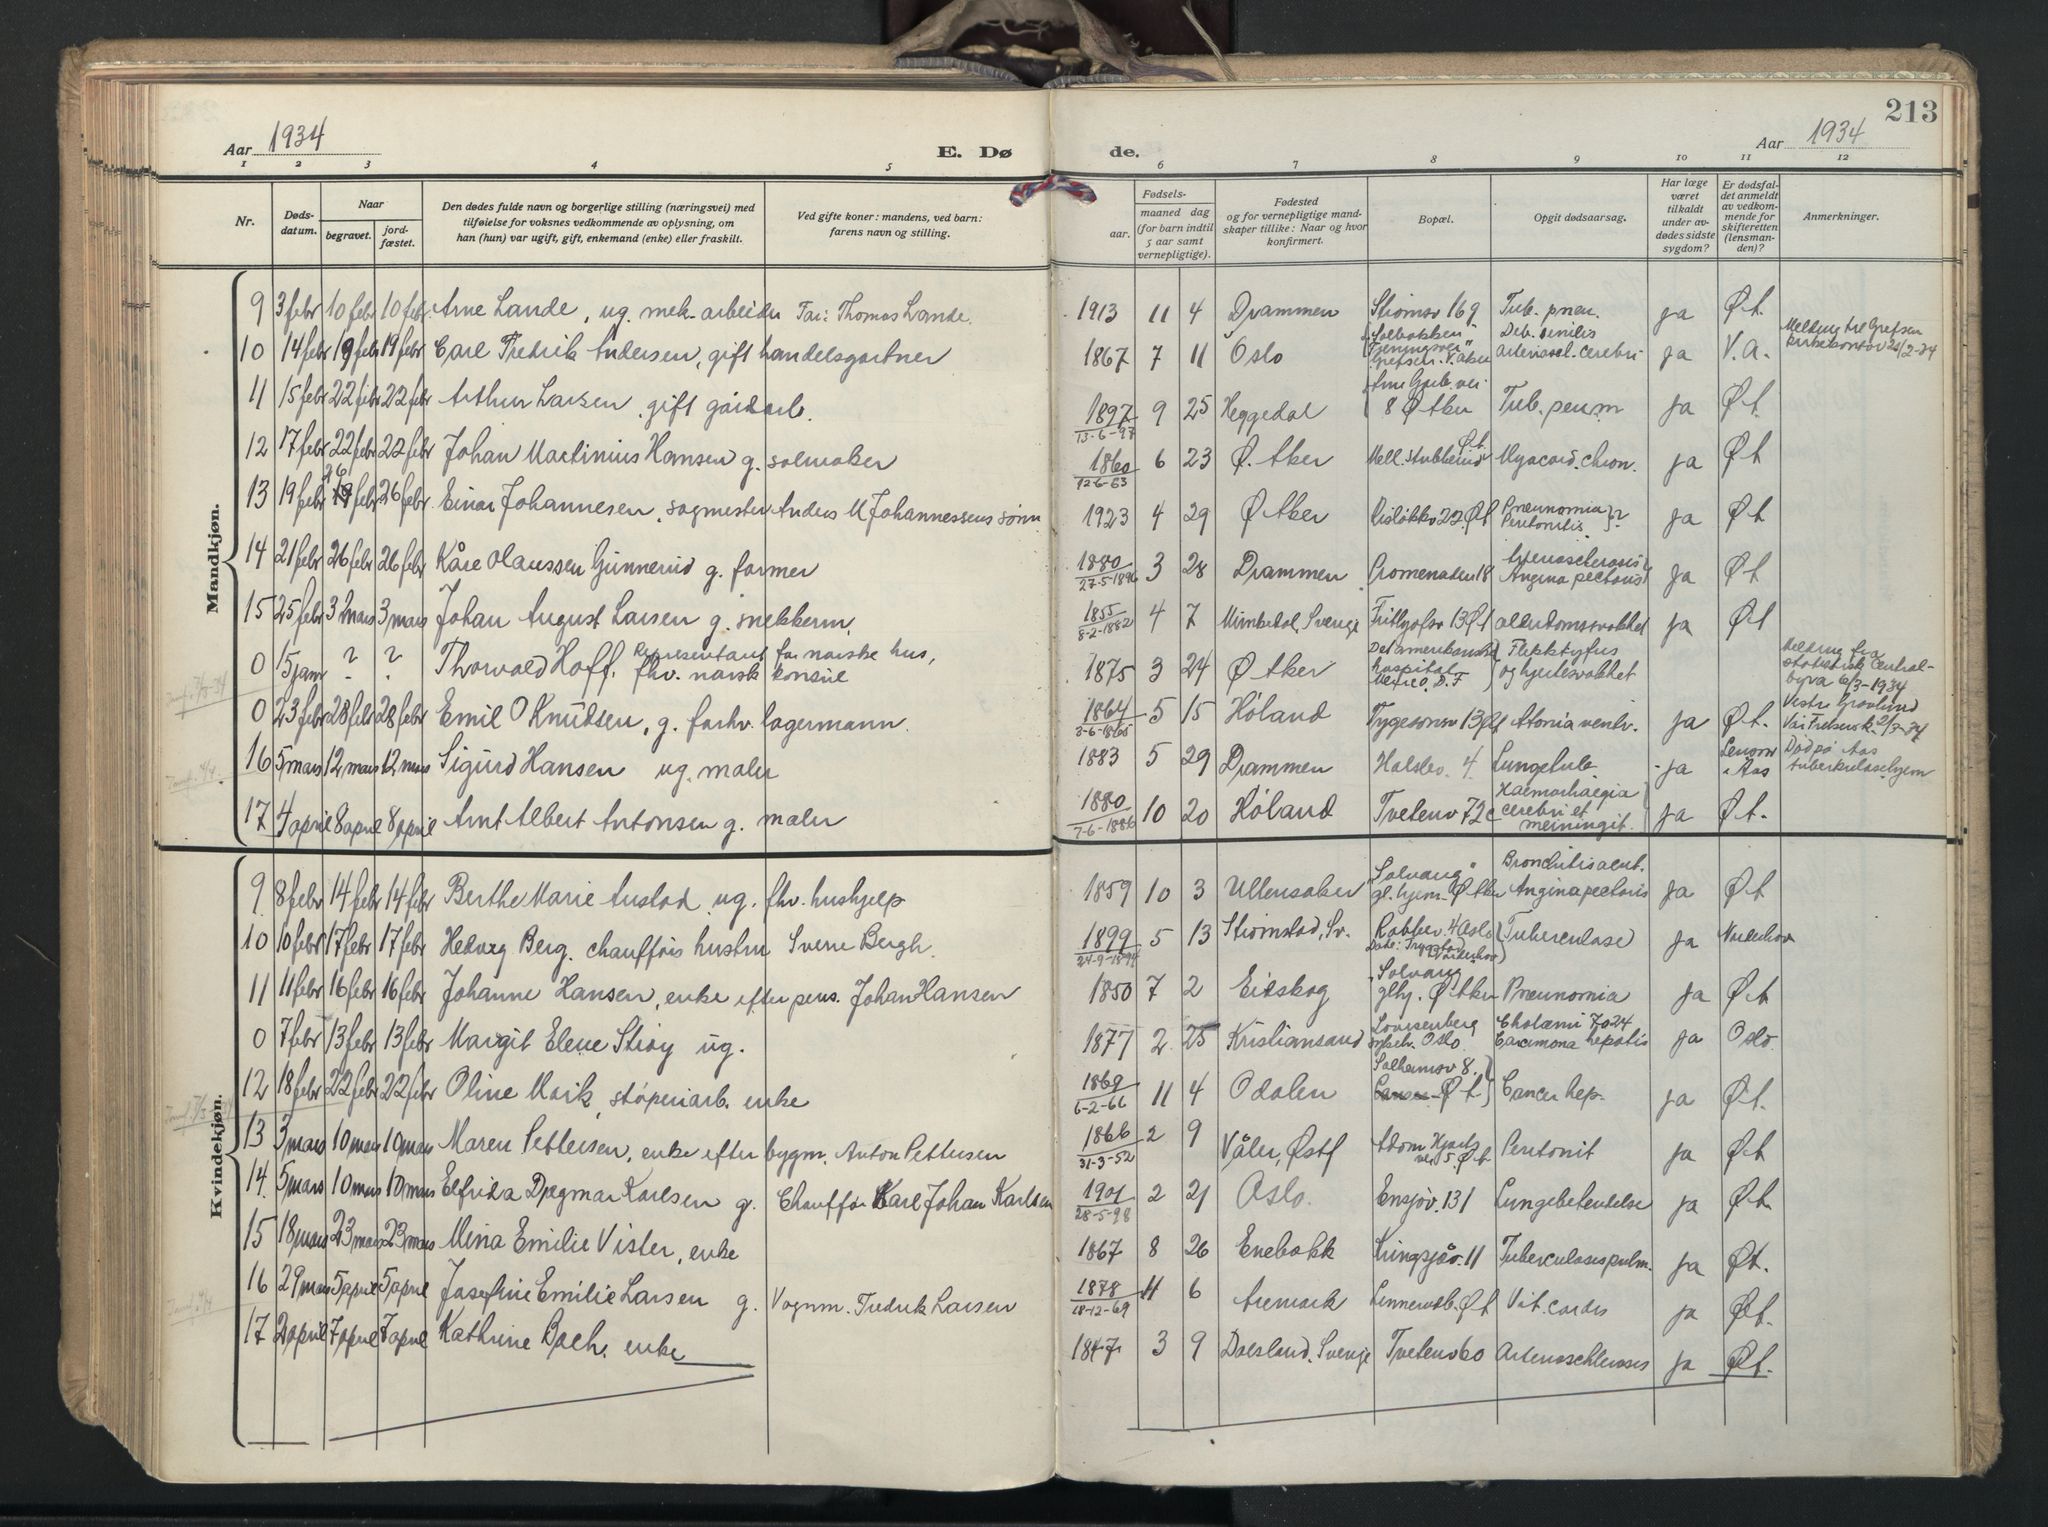 213
Aar 1934 E. Dø de. Aar 1934
1 2 3 4 5 6 7 8 9 10 11 12
Nr. Døds-datum. Naar begravet. jord-fæstet. Den dødes fulde navn og borgerlige stilling (næringsvei) med tilføielse for voksnes vedkommende av oplysning, om han (hun) var ugift, gift, enkemand (enke) eller fraskilt. Ved gifte koner: mandens, ved barn: farens navn og stilling. Fødsels- aar. maaned dag (for barn indtil 5 aar samt vernepligtige). Fødested og for vernepligtige mandskaper tillike: Naar og hvor konfirmert. Bopæl. Opgit dødsaarsag. Har læge været tilkaldt under avdødes sidste sygdom? Er dødsfaldet anmeldt av vedkommende for skifteretten (lensmanden)? Anmerkninger.
Mandkjøn.
9 3 febr 10 febr 10 febr. Arne Lande, ug. mek. arbeider Far: Thomas Lande. 1913 11 4 Drammen Strømsv 169 Tub. pneu. ja Ø.A.
10 14 febr 19 febr 19 febr Carl Fredrik Andersen, gift handelsgartner 1867 7 11 Oslo "Solbakken" Grefsen. V. Aker Deb. senilis arterioscl. cerebri ja V.A. Melding til Grefsen kirkekontor 2-34
11 15 febr 22 febr 22 febr Arthur Larsen, gift gårdarb. 1897 13-6-97 9 25 Heggedal 8 Ø Aker Tub. ja Ø A.
12 17 febr 22 febr 22 febr Johan Martinius Hansen g. salmaker 1860 12-6-63 6 23 Ø. Aker Mell. Stubberud Ø.A. Myocard. chron. ja Ø A
13 19 febr 26 febr 26 febr. Einar Johannesen, sagmester Anders M Johannessens sønn 1923 4 29 Ø Aker Risløkkv 22 Ø A Pneumonia Peritonitis } ? ja Ø A
14 21 febr 26 febr 26 febr Kåre Olaussen Gunnerud g. former 1880 27-5-1896 3 28 Drammen Promenaden 18 Arterioscleros Angina pectoris ja Ø A
15 25 febr 3 2 mars 3 mars Johan August Larsen g. snekkerm. 1855 8-2-1882 4 7 Sverige Frithjofsv 13 Ø A alderdomssvakhet ja Ø A
0 15 jan ? ? Thorvald Hoff, Representant for norske hus, fhv. norsk konsul 1875 3 24 Ø Aker Det amerikanske hospital Mexico, D.F Flekktyfus og hjertesvakhet Melding fra statistisk Central-byrå 6/3-1934
0 23 febr 28 febr 28 febr Emil O Knudsen, g. forhv. lagermann. 1864 3-6-1865 5 15 Høland Tygesonsv 13 Ø A Atonia ventr. ja Ø.A. Vestre Gravlund Vår Frelsers k. 2/3-34
16 5 mars 12 mars 12 mars Sigurd Hansen ug. maler 1883 5 29 Drammen Halsev. 4. Lungetub. ja Lensm i Aas Død på Aas tuberkulosehjem
17 4 april 8 april 8 april Arnt Albert Antonsen g. maler 1880 7-6-1886 10 20 Høland Tvetenv 72 c Haemorhaegia cerebri et meiningit. ja Ø A.
Kvindekjøn.
9 8 febr 14 febr 14 febr Berthe Marie Austad ug. fhv. hushjelp 1859 10 3 Ullensaker "Solvang" gl. hjem. Ø Aker Bronchitis acut. Angina pectoris ja Ø A
10 10 febr 17 febr 17 febr Hedvig Berg. chaufførs hustru Sverre Bergh. 1899 24-9-1894 5 13 Strømstad, Sv. 4 Oslo Tuberculose ja Nordstrand
11 11 febr 16 febr 16 febr Johanne Hansen, enke efter pens. Johan Hansen 1850 7 2 Eidskog "Solvang" glhj. Ø Aker Pneunomia ja Ø A
0 7 febr 13 febr 13 febr Margit Elene Strøy ug. 1877 2 25 Kristiansand Lovisenberg sykeh. Oslo. Cholæmi Carcinoma hepatis ja Oslo.
12 18 febr 22 febr 22 febr Oline Mork, støperiarb. enke 1869 6-2-66 11 4 Odalen Solheimsv 8. Ø A. Cancer hep. ja Ø A.
13 3 mars 10 mars 10 mars Maren Pettersen, enke efter bygm. Anton Pettersen 1866 31-3-52 2 9 Våler, Østf Adom Hjorts vei 5. Ø A Peritonit ja Ø A
14. 5 mars 10 mars 10 mars Elfrida Dagmar Karlsen g. Chauffør Karl Johan Karlsen 1901 28-5-98 2 21 Oslo. Ensjøv. 131 Lungebetendelse ja Ø A.
15 18 mars 23 mars 23 mars Mina Emilie Vister, enke 1867 8 26 Enebakk Kringsjåv. 11 Tuberculosis pulm. ja Ø A.
16 29 mars 5 april 5 april Josefine Emilie Larsen g. Vognm. Fredrik Larsen 1878 18-12-69 11 6 Aremark Ø A Vit. cordis ja Ø A
17 2 april 7 april 7 april Kathrine Bach. enke 1847 3 9 Dalsland, Sverige Tvetenv 60 Arterioschlerosis ja Ø A.